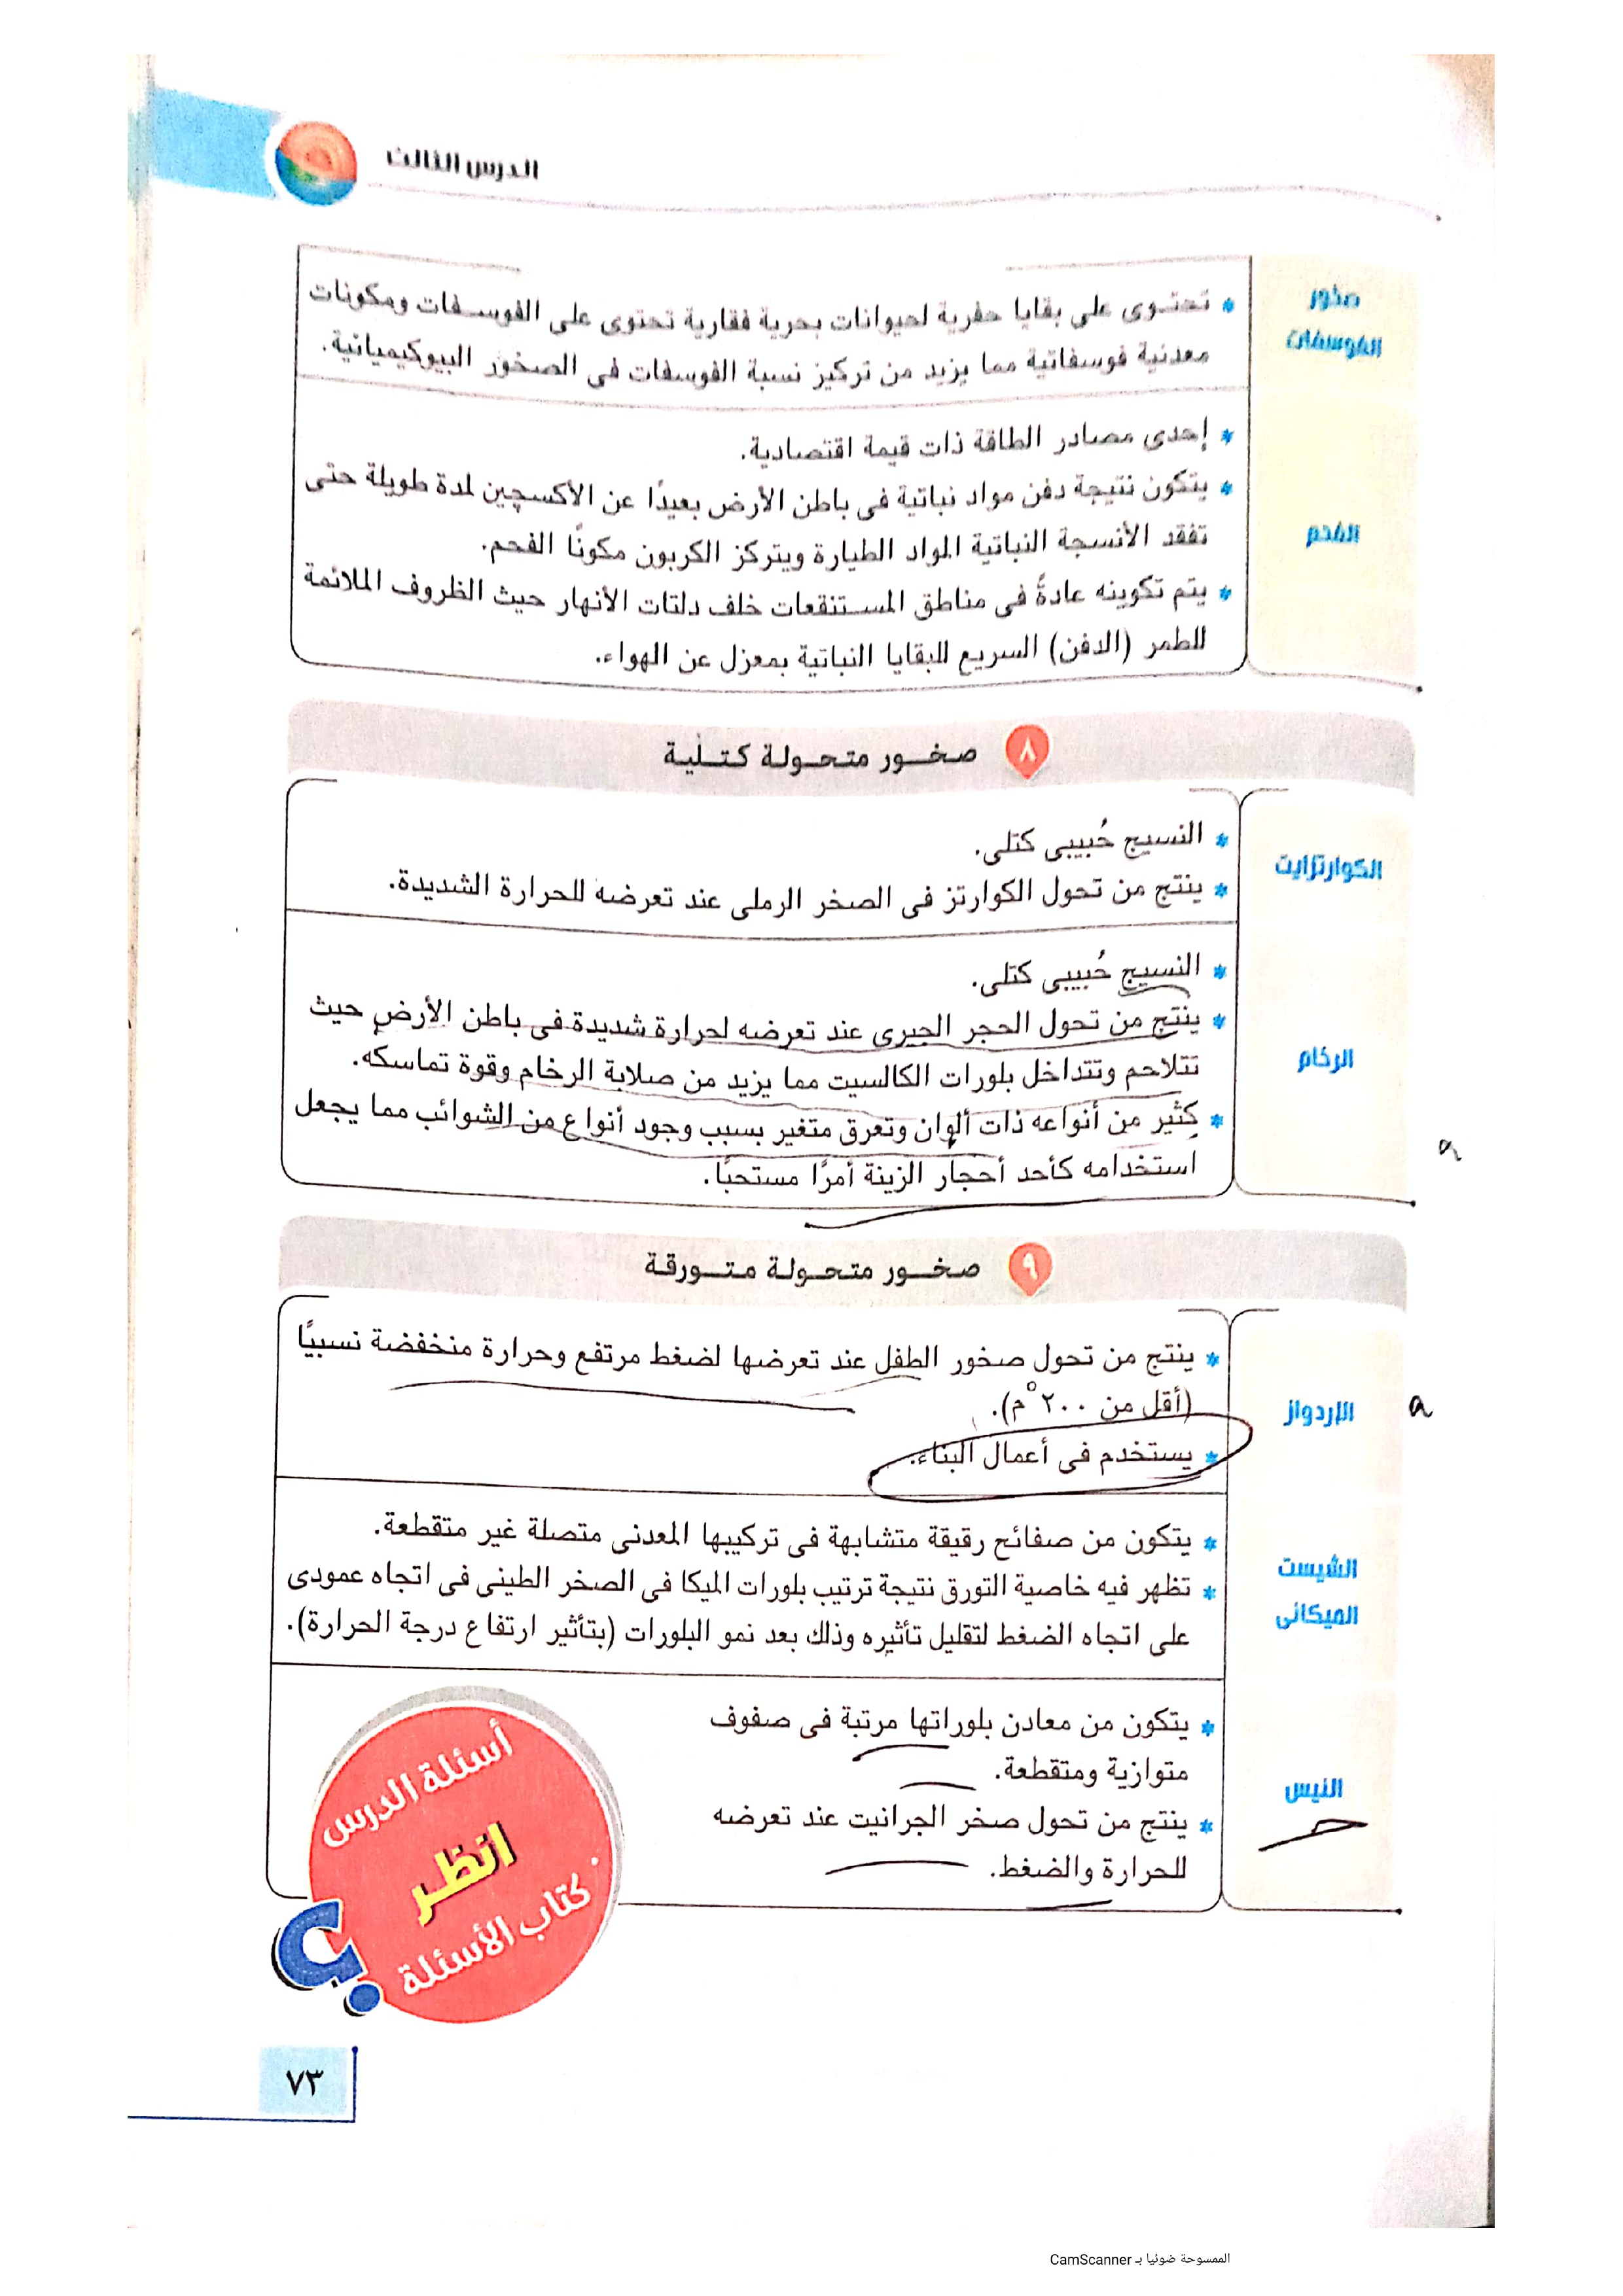 الدرس الثالث
صخور
الفوسفات
* تحتوى على بقايا حفرية لحيوانات بحرية فقارية تحتوى على الفوسفات ومكونات
معدنية فوسفاتية مما يزيد من تركيز نسبة الفوسفات فى الصخور البيوكيميائية.
الفحم
* إحدى مصادر الطاقة ذات قيمة اقتصادية.
* يتكون نتيجة دفن مواد نباتية فى باطن الأرض بعيدًا عن الأكسچين لمدة طويلة حتى
تفقد الأنسجة النباتية المواد الطيارة ويتركز الكربون مكونًا الفحم.
* يتم تكوينه عادةً فى مناطق المستنقعات خلف دلتات الأنهار حيث الظروف الملائمة
للطمر (الدفن) السريع للبقايا النباتية بمعزل عن الهواء.
٨ صخور متحولة كتلية
الكوارتزايت
* النسيج حُبيبى كتلى.
* ينتج من تحول الكوارتز فى الصخر الرملى عند تعرضه للحرارة الشديدة.
الرخام
* النسيج حُبيبى كتلى.
* ينتج من تحول الحجر الجيرى عند تعرضه لحرارة شديدة فى باطن الأرض حيث
تتلاحم وتتداخل بلورات الكالسيت مما يزيد من صلابة الرخام وقوة تماسكه.
* كثير من أنواعه ذات ألوان وتعرق متغير بسبب وجود أنواع من الشوائب مما يجعل
استخدامه كأحد أحجار الزينة أمرًا مستحبًا.
a
٩ صخور متحولة متورقة
الإردواز
a
* ينتج من تحول صخور الطفل عند تعرضها لضغط مرتفع وحرارة منخفضة نسبيًا
(أقل من ٢٠٠°م).
* يستخدم فى أعمال البناء.
الشيست
الميكائى
* يتكون من صفائح رقيقة متشابهة فى تركيبها المعدنى متصلة غير متقطعة.
* تظهر فيه خاصية التورق نتيجة ترتيب بلورات الميكا فى الصخر الطينى فى اتجاه عمودى
على اتجاه الضغط لتقليل تأثيره وذلك بعد نمو البلورات (بتأثير ارتفاع درجة الحرارة).
النيس
* يتكون من معادن بلوراتها مرتبة فى صفوف
متوازية ومتقطعة.
* ينتج من تحول صخر الجرانيت عند تعرضه
للحرارة والضغط.
أسئلة الدرس
انظر
كتاب الأسئلة
؟
٧٣
الممسوحة ضوئيا بـ CamScanner